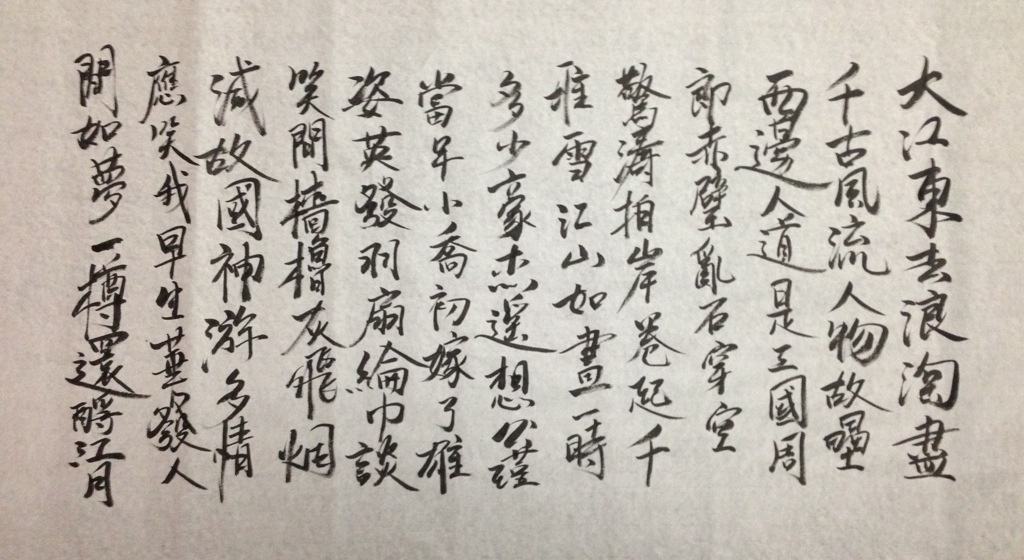 大江東去浪淘盡
千古風流人物故壘
西邊人道是三國周
郎赤壁亂石穿空
驚濤拍岸卷起千
堆雪江山如畫一時
多少豪杰遥想公瑾
當年小喬初嫁了雄
姿英發羽扇綸巾談
笑間檣櫓灰飛烟
滅故國神游多情
應笑我早生華發人
間如夢一樽還酹江月